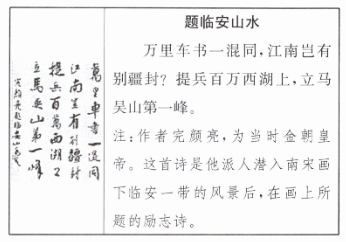 萬里車書一混同
江南豈有别疆封
提兵百萬西湖上
立馬吴山第一峰
题临安山水
万里车书一混同，江南岂有
别疆封？提兵百万西湖上，立马
吴山第一峰。
注：作者完颜亮，为当时金朝皇
帝。这首诗是他派人潜入南宋画
下临安一带的风景后，在画上所
题的励志诗。